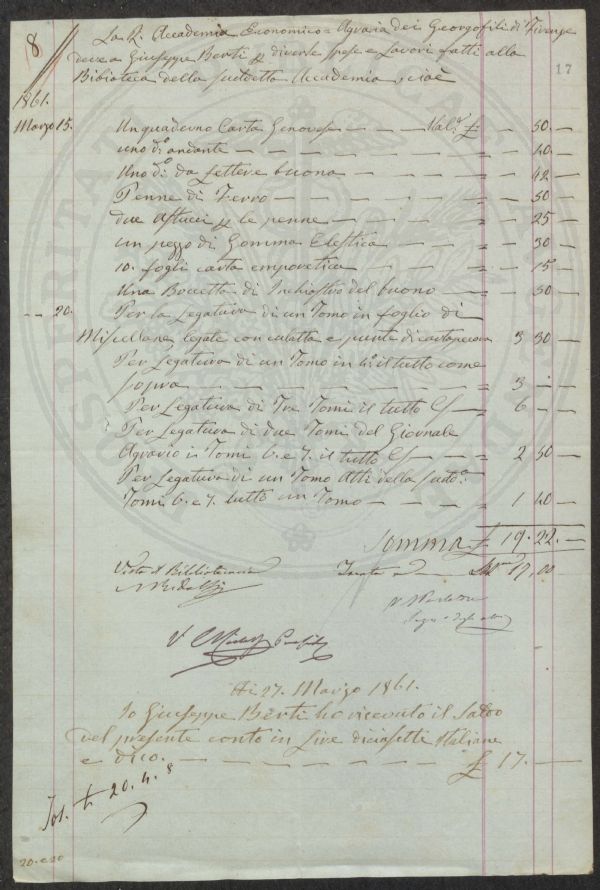 8
La R. Accademia Economico=Agraria dei Georgofili di Firenze
17
deve a Giuseppe Berti p diverse spese e lavori fatti alla
Biblioteca della suddetta Accademia, cioè
1861.
Marzo 15. Un quaderno Carta Genovese — — — Val.e £ — 50. —
uno d.o andante — — — — — — — = — 40. —
Uno d.o da Lettere buona — — — — — = — 42 —
Penne di Ferro — — — — — — = — 50 —
due astucci p le penne — — — — — = — 25 —
un pezzo di Gomma Elestica — — — — = — 30 —
10. fogli carta emporetica — — — — = — 15 —
Una Boccetta di Inchiostro del buono — — = — 50 —
20. Per la Legatura di un Tomo in foglio di
Miscellane legate con culatta e punte di cartapecora 3 30 —
Per Legatura di un Tomo in 4.o il tutto come
sopra — — — — — — — = 3 — —
Per Legatura di Tre Tomi il tutto CS — = 6 — —
Per Legatura di due Tomi del Giornale
Agrario in Tomi 6. e 7. il tutto CS — = 2 50 —
Per Legatura di un Tomo Atti della sud.a
Tomi 6. e 7. tutto un Tomo — — = 1 40 —
Somma £ 19. 22. —
Visto il Bibliotecario
17,00
Ai 27. Marzo 1861.
Io Giuseppe Berti ho ricevuto il Saldo
del presente conto in Lire diciasette Italiane
e dico. — — — — — — — £ 17. —
20. 4. 8
20.c.20
PROSPERITATI